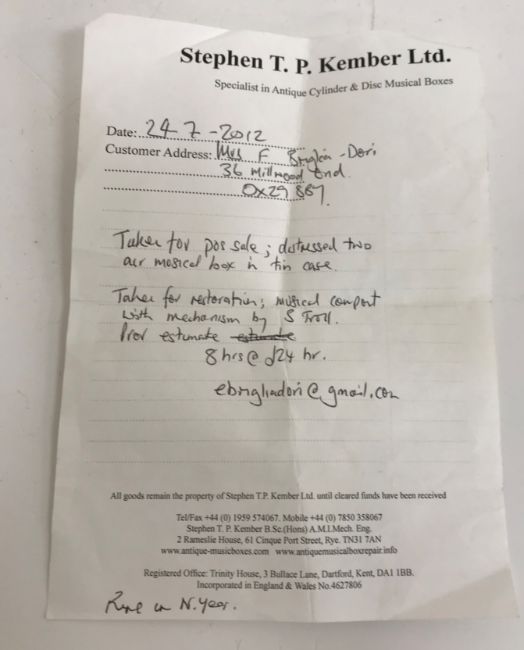 Stephen T. P. Kember Ltd.
Specialist in Antique Cylinder & Disc Musical Boxes
Date: 24 7 - 2012
Customer Address: Mrs F -Dori
36 Millwood End.
OX29 8
Taken for pos sale; distressed two
air musical box in tin case.
Taken for restoration; musical
with mechanism by S Troll.
Prov estimate estimate
8 hrs @ £24 hr.
ebrigliadori@gmail.com
All goods remain the property of Stephen T.P. Kember Ltd. until cleared funds have been received
Tel/Fax +44 (0) 1959 574067. Mobile +44 (0) 7850 358067
Stephen T. P. Kember B.Sc.(Hons) A.M.I.Mech. Eng.
2 Rameslie House, 61 Cinque Port Street, Rye. TN31 7AN
www.antique-musicboxes.com www.antiquemusicalboxrepair.info
Registered Office: Trinity House, 3 Bullace Lane, Dartford, Kent, DA1 1BB.
Incorporated in England & Wales No.4627806
in N. Year.